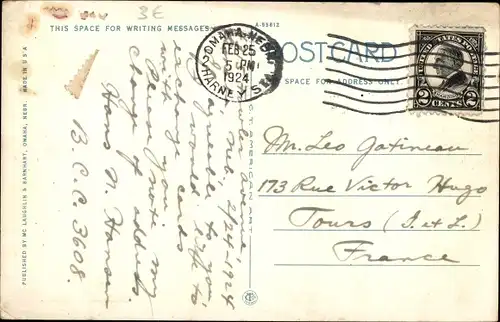 3E
A-93812
THIS SPACE FOR WRITING MESSAGES
POSTCARD
SPACE FOR ADDRESS ONLY
OMAHA, NEBR.
FEB 25
5 PM
1924
HARNEY STA.
UNITED STATES POSTAGE
2 CENTS 2
avenue,
Neb, 2/24-1924
agreeable to you,
I would like to
exchange cards
with you.
Please notice my
change of address
Hans N. Hansen
B.C.C. 3608.
Mr. Leo Gatineau
173 Rue Victor Hugo
Tours (I. et L.)
France
PUBLISHED BY MC LAUGHLIN & BARNHART, OMAHA, NEBR. MADE IN U.S.A.